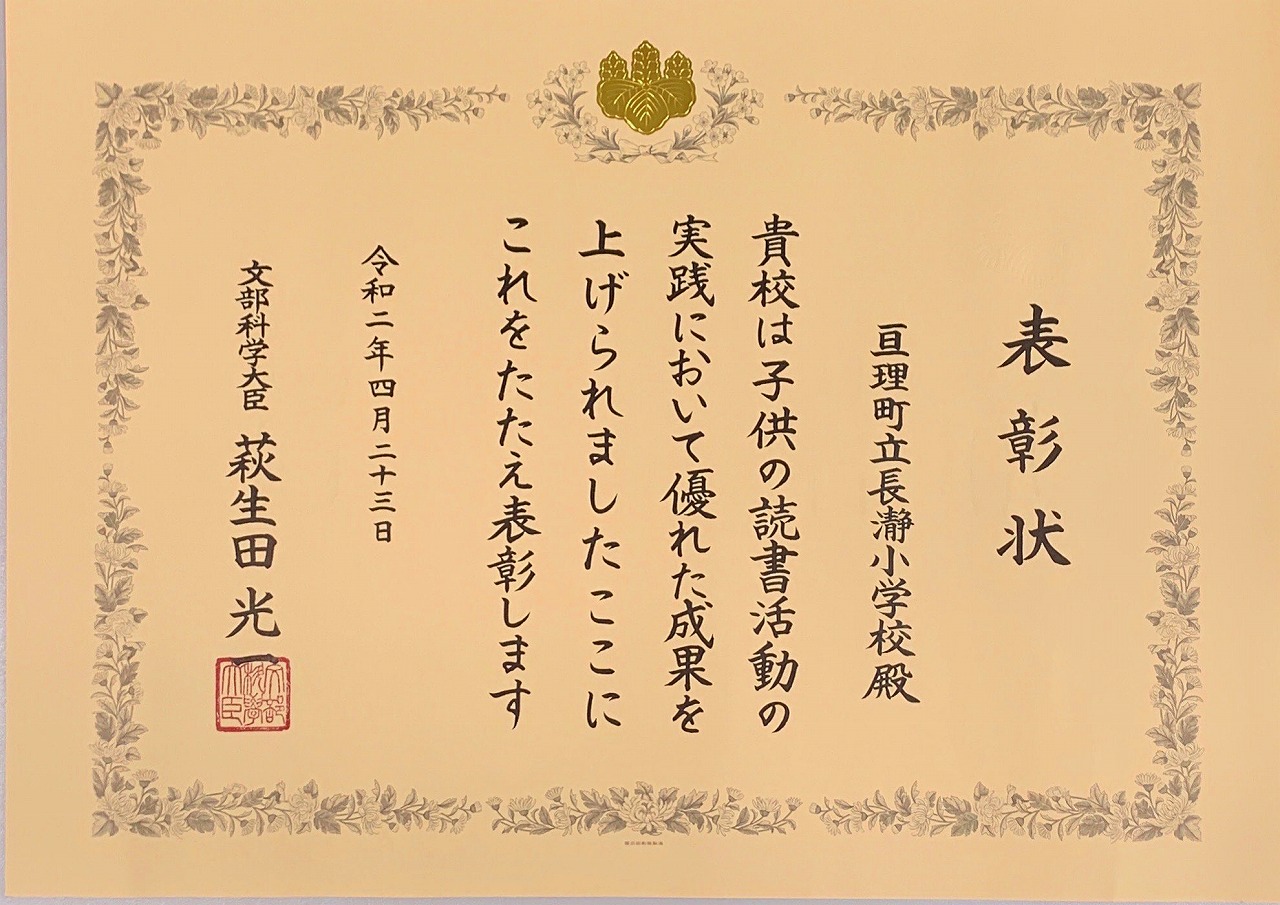 表彰状
亘理町立長瀞小学校殿
貴校は子供の読書活動の
実践において優れた成果を
上げられましたここに
これをたたえ表彰します
令和二年四月二十三日
文部科学大臣 萩生田光一
文部科学大臣